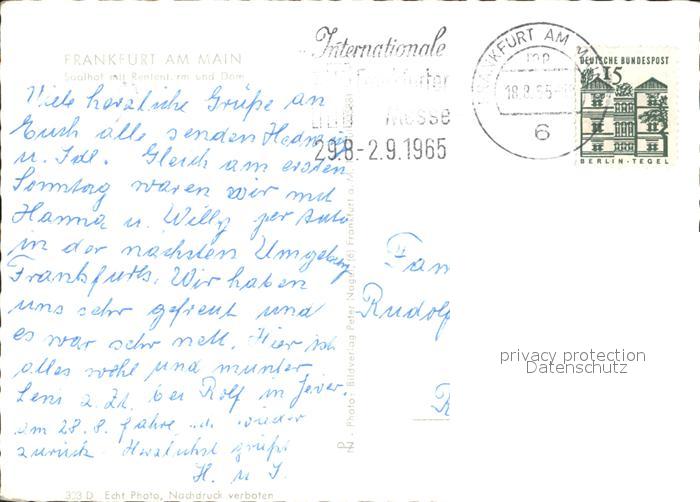 FRANKFURT AM MAIN
Saalhof mit Rententurm und Dom
Viele herzliche Grüße an
Euch alle senden Hedwig
u. Idl. Gleich am ersten
Sonntag waren wir mit
Hanna u. Willy per Auto
in der nächsten Umgebung
Frankfurts. Wir haben
uns sehr gefreut und
es war sehr nett. Hier ist
alles wohl und munter.
Leni z. Zt. bei Rolf in Jever.
am 28. 8. fahre wieder
zurück. Herzlichst grüßt
H. u. I.
303 D Echt Photo, Nachdruck verboten
Photo: Bildverlag Peter Frankfurt a.
Internationale
Frankfurter
Messe
29.8.-2.9.1965
FRANKFURT AM
18.8.65
6
DEUTSCHE BUNDESPOST
15
BERLIN-TEGEL
Fam
Rudolf
R
privacy protection
Datenschutz